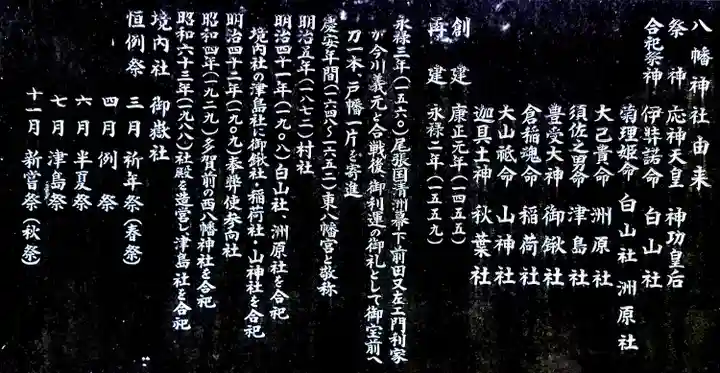 八幡神社由来
祭神 応神天皇 神功皇后
合祀祭神 伊弉諾命 白山社
菊理姫命 白山社 洲原社
大己貴命 洲原社
須佐之男命 津島社
豊受大神 御鍬社
倉稲魂命 稲荷社
大山祗命 山神社
迦具土神 秋葉社
創建 康正元年(一四五五)
再建 永禄二年(一五五九)
永禄三年(一五六〇)尾張国清洲幕下前田又左エ門利家
が今川義元と合戦後、御利運の御礼として御宝前へ
刀一本、戸幡一片を寄進
慶安年間(一六四八~一六五二)東八幡宮と敬称
明治五年(一八七二)村社
明治四十一年(一九〇八)白山社、洲原社を合祀
境内社の津島社に御鍬社・稲荷社・山神社を合祀
明治四十二年(一九〇九)奉弊使参向社
昭和四年(一九二九)多賀前の西八幡神社を合祀
昭和六十三年(一九八八)社殿を造営し津島社を合祀
境内社 御嶽社
恒例祭 三月 祈年祭(春祭)
四月 例祭
六月 半夏祭
七月 津島祭
十一月 新嘗祭(秋祭)